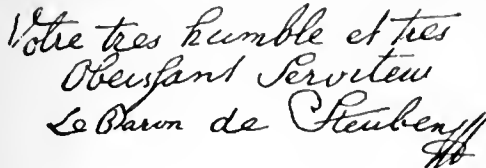 Votre tres humble et tres
Obeissant Serviteur
Le Baron de Steuben